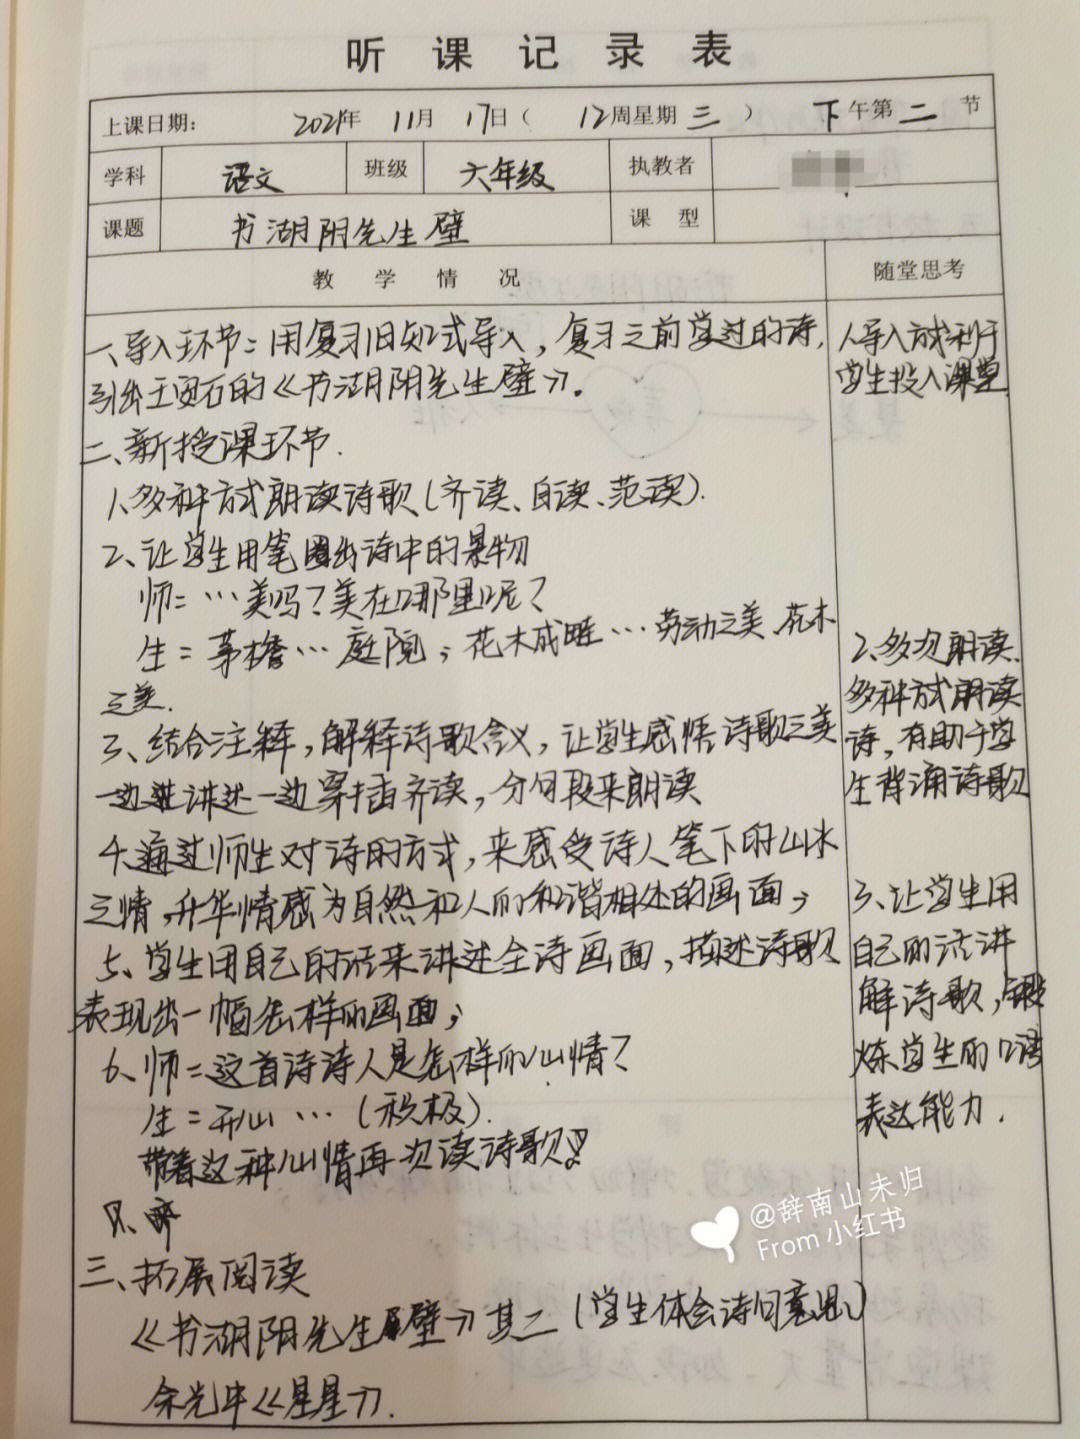 听课记录表
上课日期: 2021年 11月 17日( 12周星期 三 ) 下午第 二 节
学科 语文 班级 六年级 执教者
课题 书湖阴先生壁 课型
教学情况 随堂思考
一、导入环节:用复习旧知式导入,复习之前学过的诗,
引出王安石的《书湖阴先生壁》。
二、新授课环节.
1、多种方式朗读诗歌(齐读、自读、范读).
2、让学生用笔圈出诗中的景物
师:…美吗?美在哪里呢?
生:茅檐…庭院;花木成畦…劳动之美、花木
之美.
3、结合注释,解释诗歌含义,让学生感悟诗歌之美
一边讲述一边穿插齐读,分句段来朗读
4、通过师生对诗的方式,来感受诗人笔下的山水
之情,升华情感为自然和人的和谐相处的画面;
5、学生用自己的话来讲述全诗画面,描述诗歌
表现出一幅怎样的画面;
6、师:这首诗诗人是怎样的心情?
生:开心…(积极).
带着这种心情再次读诗歌
三、拓展阅读
《书湖阴先生壁》其二(学生体会诗句意思)
余光中《星星》.
1、导入方式利于
学生投入课堂
2、多次朗读、
多种方式朗读
诗,有助于学
生背诵诗歌
3、让学生用
自己的话讲
解诗歌,锻
炼学生的口语
表达能力.
@辞南山未归
From 小红书